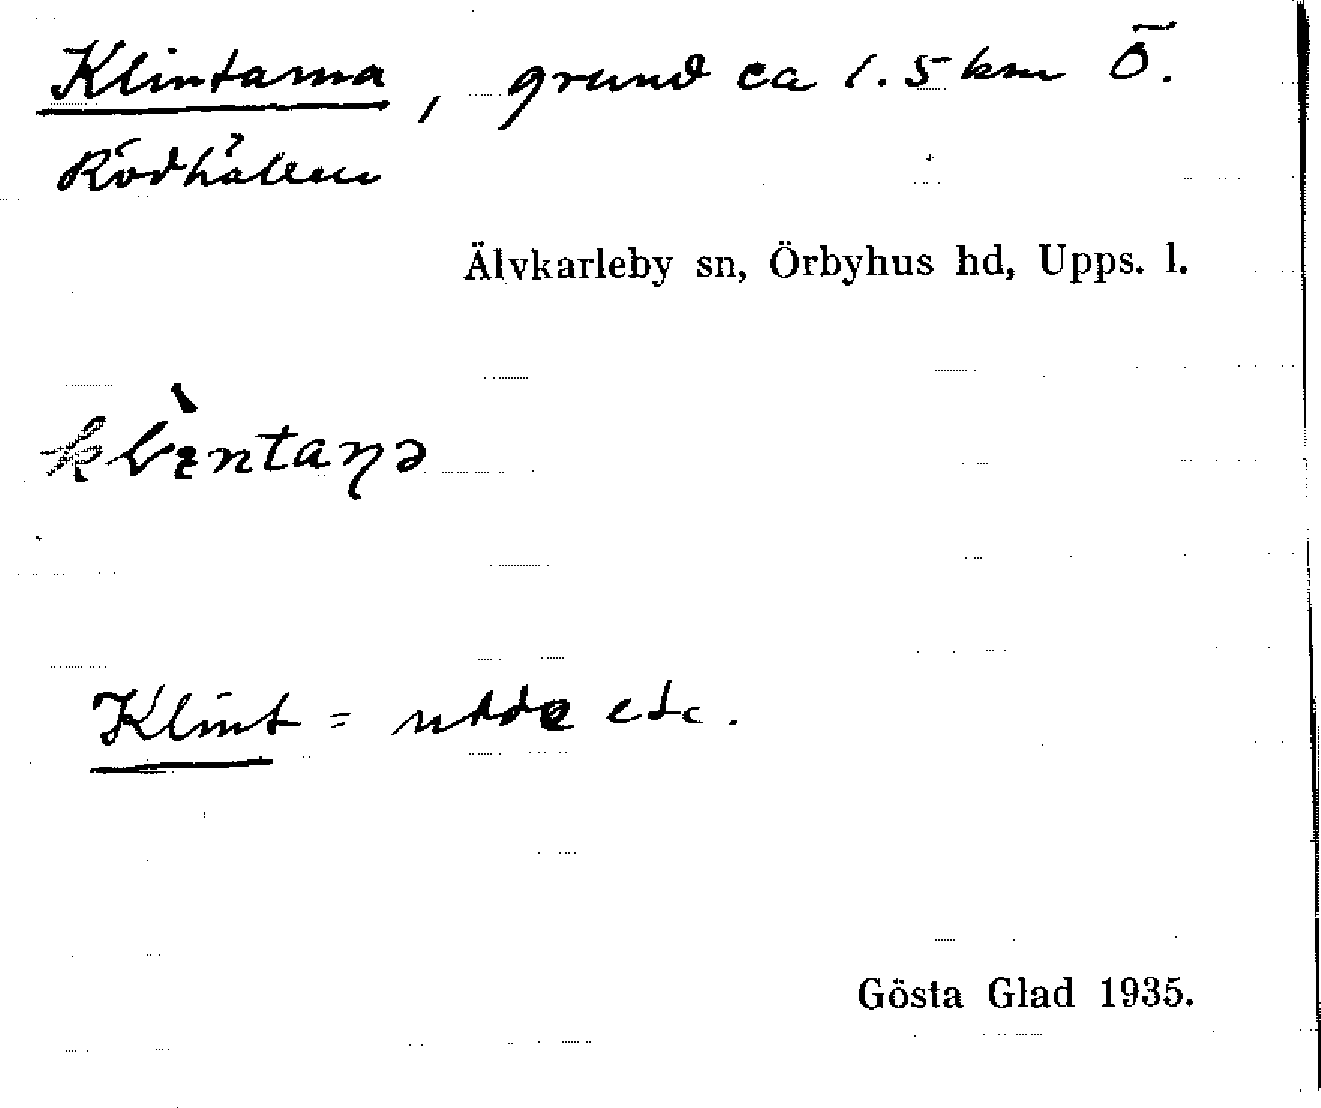 Klintarna, grund ca 1.5 km Ö.
Rödhällen
Älvkarleby sn, Örbyhus hd, Upps. l.
klìntaɳə
Klint = udde etc.
Gösta Glad 1935.